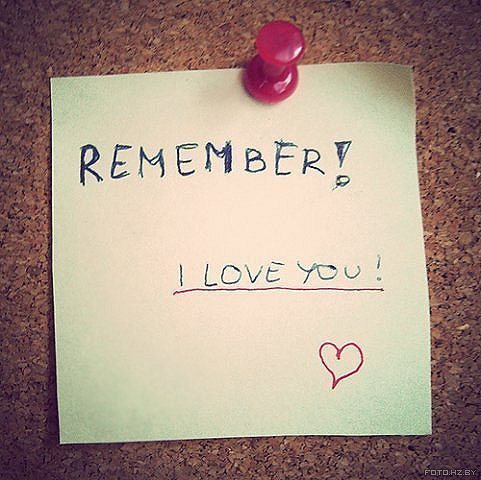 REMEMBER!
I LOVE YOU!
FOTO.HZ.BY